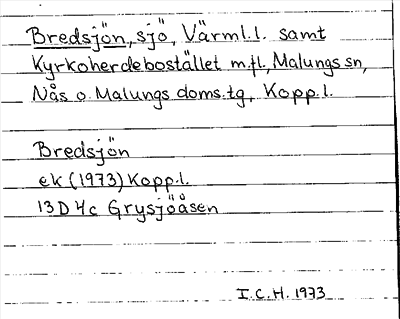 Bredsjön, sjö, Värml.l. samt
Kyrkoherdebostället m.fl., Malungs sn,
Nås o. Malungs doms.tg, Kopp.l.
Bredsjön
ek (1973) Kopp.l.
13D 4c Grysjöåsen
I.C.H. 1973